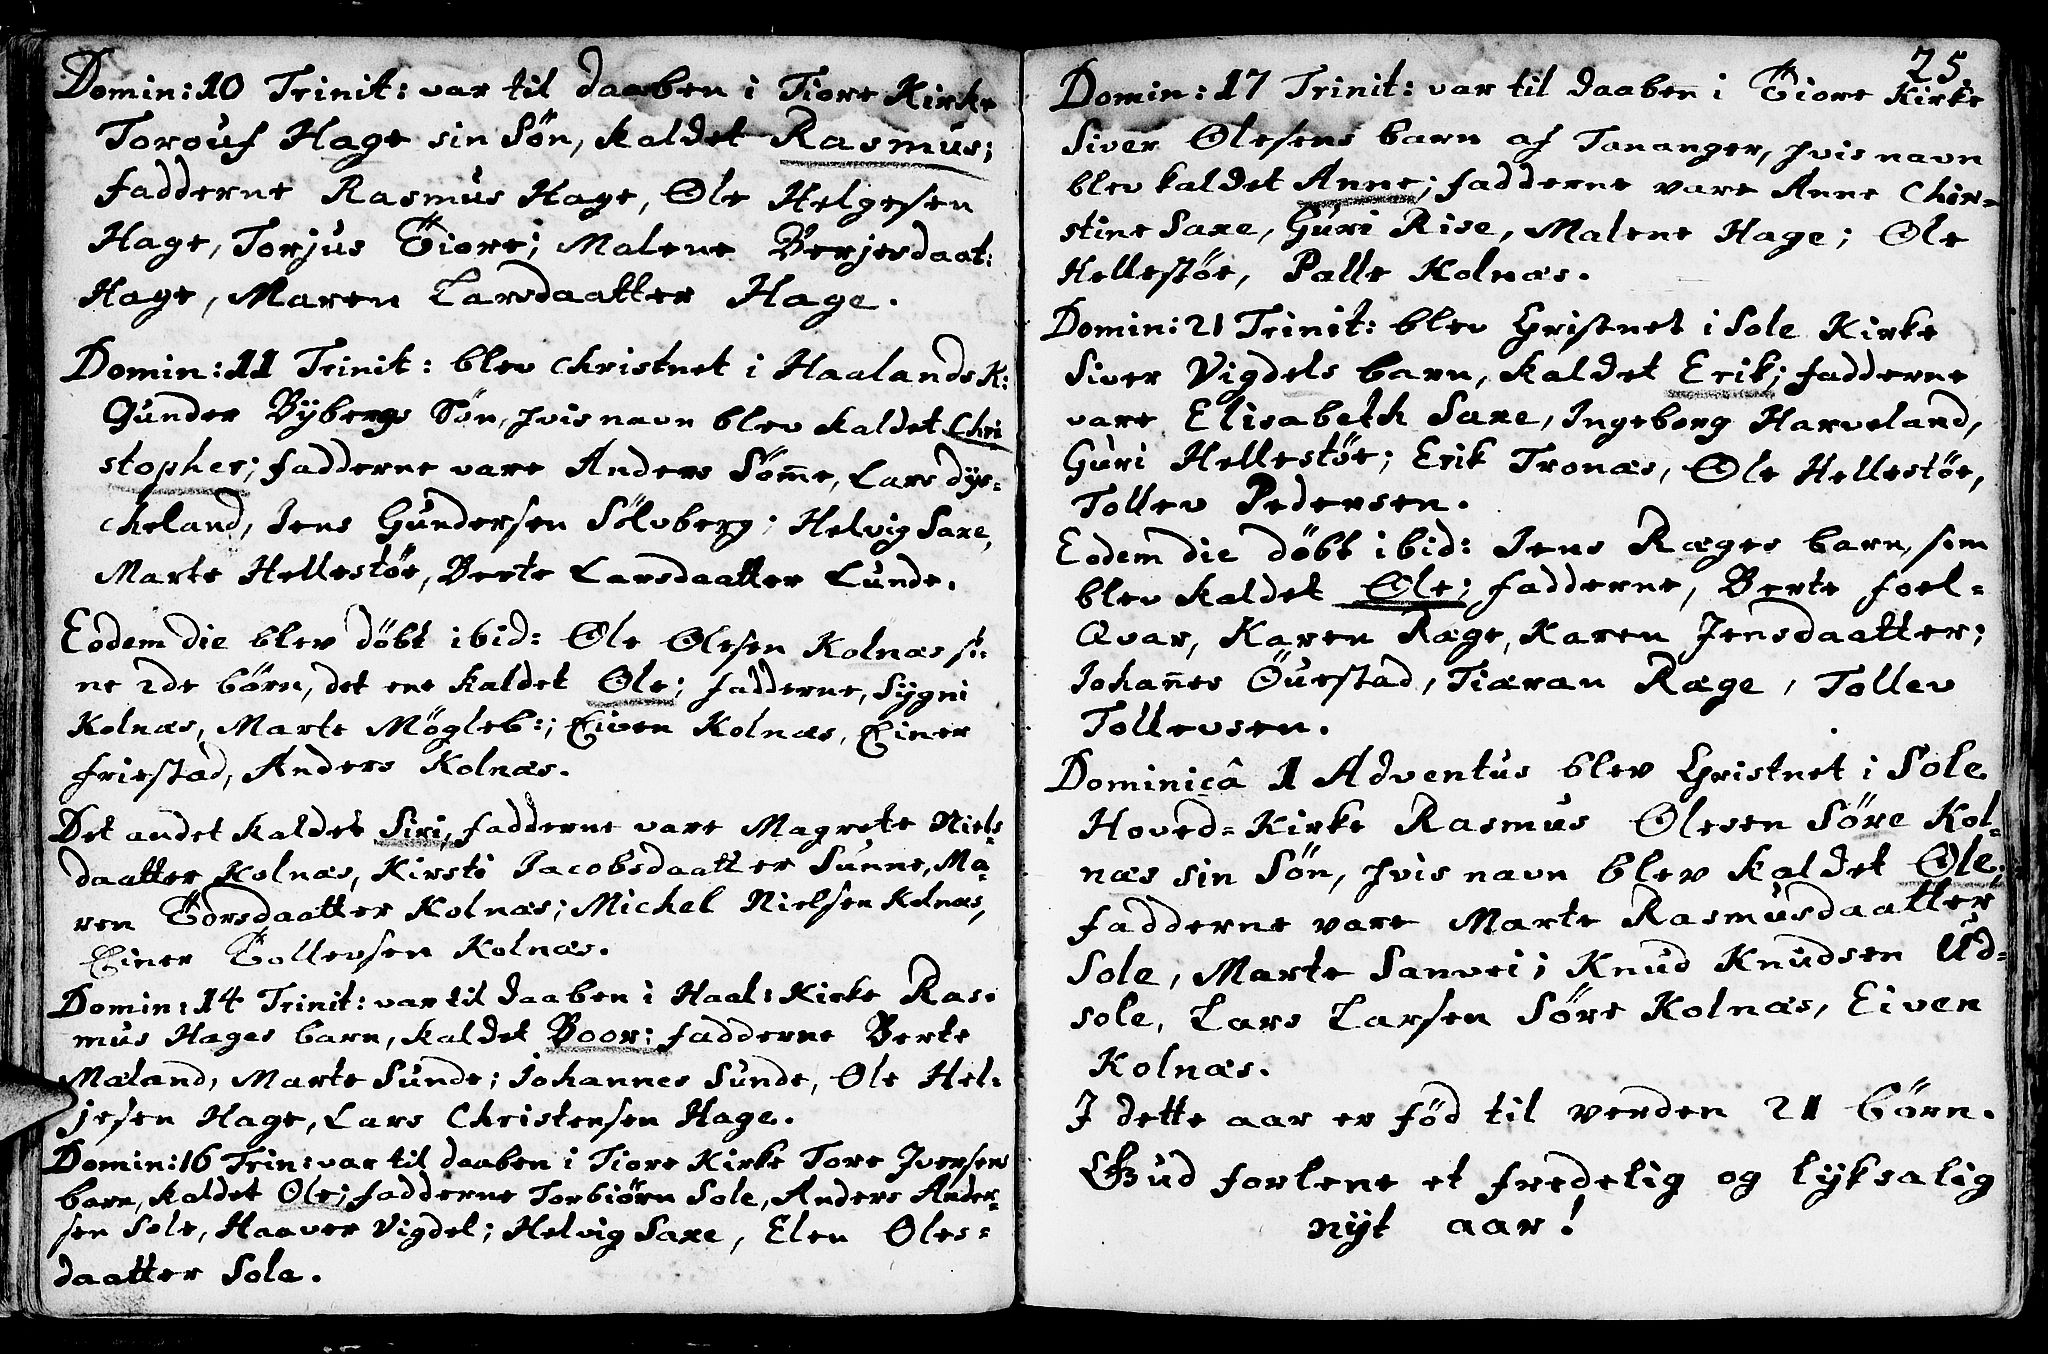 Domin: 10 Trinit: var til daaben i Tiore Kirke
Torouf Hage sin Sön, kaldet Rasmus;
fadderne Rasmus Hage, Ole Helgesen
Hage, Torjus Tiore; Malene Berjesdaat:
Hage, Maren Larsdaatter Hage.
Domin: 11 Trinit: blev christnet i Haalands K:
Gunder Bÿbergs Sön, hvis navn blev kaldet Chri
stopher; fadderne vare Anders Söm̄e, Lars dÿs-
cheland, Jens Gundersen Sölvberg; Helvig Saxe,
Marte Hellestöe, Berte Larsdaatter Lunde.
Eodem die blev döbt ibid: Ole Olesen Kolnæs si-
ne 2de börn, det ene kaldet Ole; fadderne, Sÿgni
Kolnæs, Marte Mögleb:; Eiven Kolnæs, Einer
friestad, Anders Kolnæs.
Det andet kaldet Siri; fadderne vare Magrete Niels
daatter Kolnæs, Kirsti Jacobsdaatter Sunne, Ma-
ren Torsdaatter Kolnæs; Michel Nielsen Kolnæs,
Einer Tollevsen Kolnæs.
Domin: 14 Trinit: var til daaben i Haal: Kirke Ras-
mus Hages barn, kaldet Boor: fadderne Berte
Mæland, Marte Sunde; Johannes Sunde, Ole Hel-
jesen Hage, Lars Christensen Hage.
Domin: 16 Trin: var til daaben i Tiore Kirke Tore Iversens
barn, kaldet Ole; fadderne Torbiörn Sole, Anders Ander-
sen Sole, Haaver Vigdel; Helvig Saxe, Elen Oles-
daatter Sole.
25.
Domin: 17 Trinit: var til daaben i Tiore Kirke
Siver Olesens barn af Tananger, hvis navn
blev kaldet Anne; fadderne vare Anne Chir-
stine Saxe, Guri Rise, Malene Hage; Ole
Hellestöe, Palle Kolnæs.
Domin: 21 Trinit: blev Christnet i Sole Kirke
Siver Vigdels barn, kaldet Erik; fadderne
vare Elisabeth Saxe, Ingeborg Harveland,
Guri Hellestöe; Erik Tronæs, Ole Hellestöe,
Tollev Pedersen.
Eodem die döbt ibid: Jens Ræges barn, som
blev kaldet Ole; fadderne, Berte foel-
Qvar, Karen Ræge, Karen Jensdaatter;
Johan̄es Öurstad, Tiæran Ræge, Tollev
Tollevsen.
Dominicâ 1 Adventus blev Christnet i Sole
Hoved-Kirke Rasmus Olesen Söre Kol-
næs sin Sön, hvis navn blev kaldet Ole;
fadderne vare Marte Rasmusdaatter
Sole, Marte Sanvei; Knud Knudsen Ud-
sole, Lars Larsen Söre Kolnæs, Eiven
Kolnæs.
I dette aar er föd til verden 21 börn.
Gud forlene et fredelig og lÿksalig
nÿt aar!